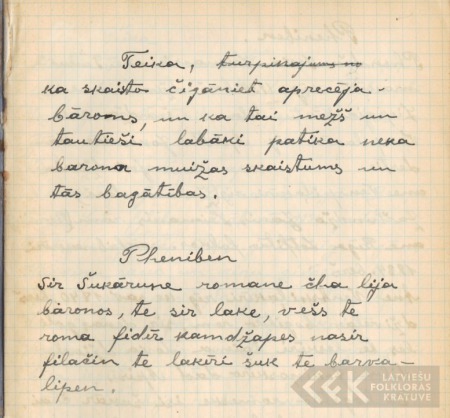 Teika, turpinajums no
ka skaisto čigāniet aprecēja -
bārons, un ka tai mežš un
tautieši labāki patīka neka
barona muižas skaistums un
tās bagātības.
Pheniben
Sir Šukārune romane čha lija
bāronos, te sir lake, vešs te
roma fidīr kamdžapes nasir
filačin te lakīri šuk te barva-
lipen.
LATVIEŠU
FOLKLORAS
KRĀTUVE